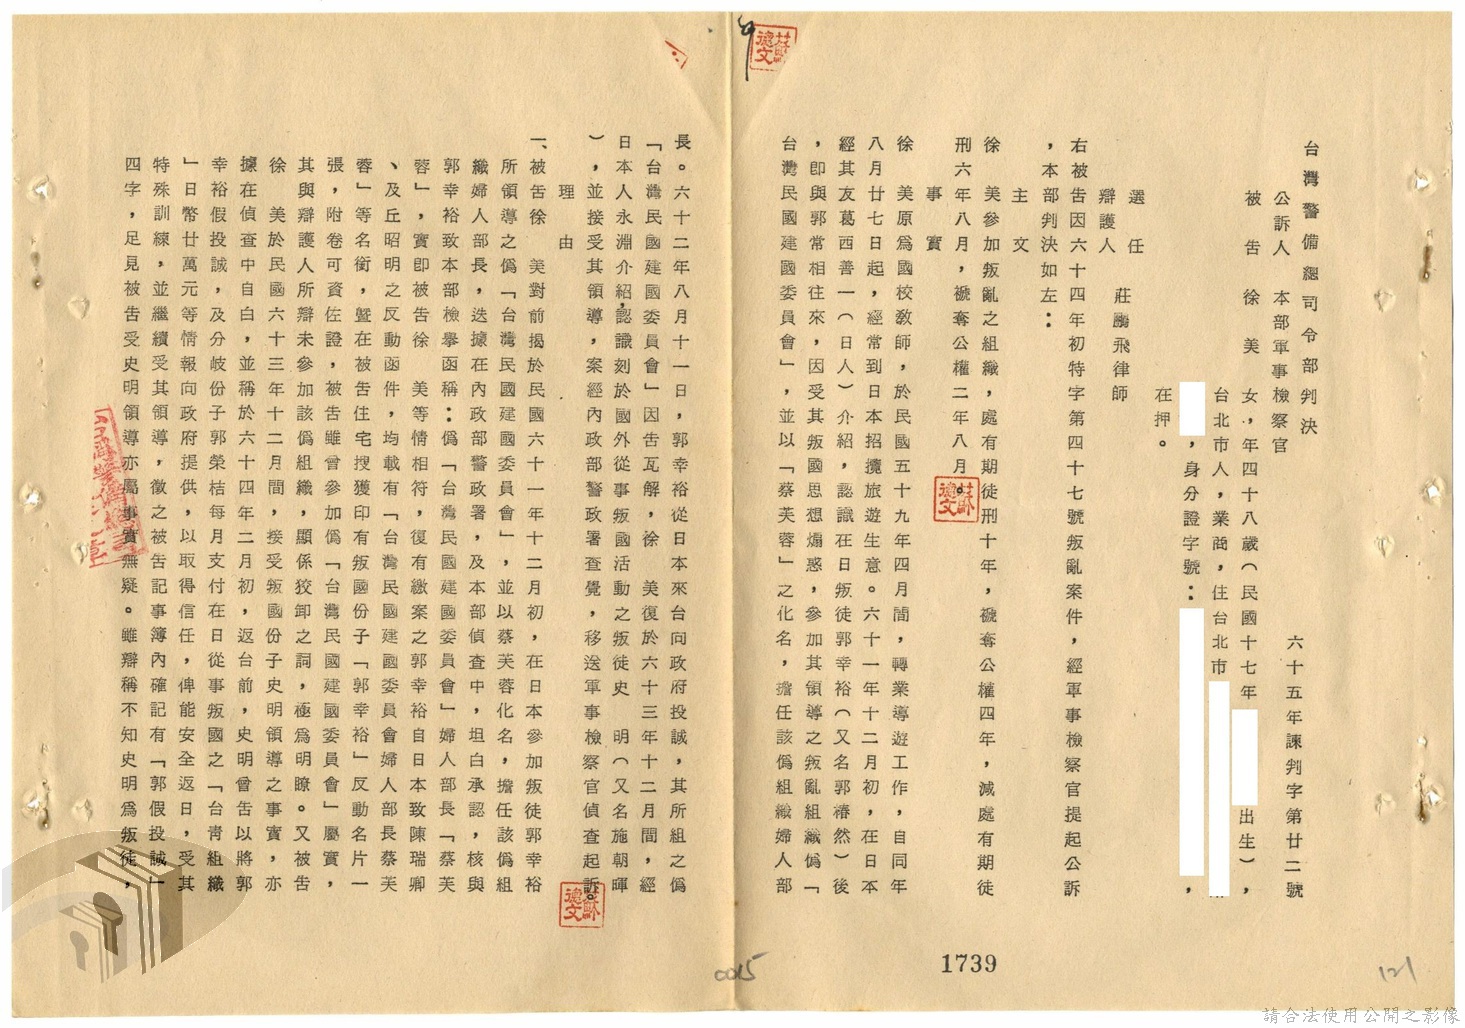 台灣警備總司令部判決
六十五年諫判字第廿二號
公訴人　本部軍事檢察官
被告　徐　美　女，年四十八歲（民國十七年
出生），
台北市人，業商，住台北市
，身分證字號：
，
在押。
選任
辯護人　莊勝飛律師
右被告因六十四年初特字第四十七號叛亂案件，經軍事檢察官提起公訴
，本部判決如左：
主文
徐　美參加叛亂之組織，處有期徒刑十年，褫奪公權四年，減處有期徒
刑六年八月，褫奪公權二年八月。
事實
徐　美原為國校教師，於民國五十九年四月間，轉業導遊工作，自同年
八月廿七日起，經常到日本招攬旅遊生意。六十一年十二月初，在日本
經其友葛西善一（日人）介紹，認識在日叛徒郭幸裕（又名郭椿然）後
，即與郭常相往來，因受其叛國思想煽惑，參加其領導之叛亂組織偽「
台灣民國建國委員會」，並以「蔡芙蓉」之化名，擔任該偽組織婦人部
長。六十二年八月十一日，郭幸裕從日本來台向政府投誠，其所組之偽
「台灣民國建國委員會」因告瓦解，徐　美復於六十三年十二月間，經
日本人永淵介紹，認識刻於國外從事叛國活動之叛徒史　明（又名施朝暉
），並接受其領導，案經內政部警政署查覺，移送軍事檢察官偵查起訴。
理由
一、被告徐　美對前揭於民國六十一年十二月初，在日本參加叛徒郭幸裕
所領導之偽「台灣民國建國委員會」，並以蔡芙蓉化名，擔任該偽組
織婦人部長，迭據在內政部警政署，及本部偵查中，坦白承認，核與
郭幸裕致本部檢舉函稱：偽「台灣民國建國委員會」婦人部長「蔡芙
蓉」，實即被告徐　美等情相符，復有繳案之郭幸裕自日本致陳瑞卿
、及丘昭明之反動函件，均載有「台灣民國建國委員會婦人部長蔡芙
蓉」等名銜，暨在被告住宅搜獲印有叛國份子「郭幸裕」反動名片一
張，附卷可資佐證，被告雖曾參加偽「台灣民國建國委員會」屬實，
其與辯護人所辯未參加該偽組織，顯係狡卸之詞，極為明瞭。又被告
徐　美於民國六十三年十二月間，接受叛國份子史明領導之事實，亦
據在偵查中自白，並稱於六十四年二月初，返台前，史明曾告以將郭
幸裕假投誠，及分岐份子郭榮桔每月支付在日從事叛國之「台青組織
」日幣廿萬元等情報向政府提供，以取得信任，俾能安全返日，受其
特殊訓練，並繼續受其領導，徵之被告記事簿內確記有「郭假投誠」
四字，足見被告受史明領導亦屬事實無疑。雖辯稱不知史明為叛徒，
1739
0015
121
蘇德文
請合法使用公開之影像